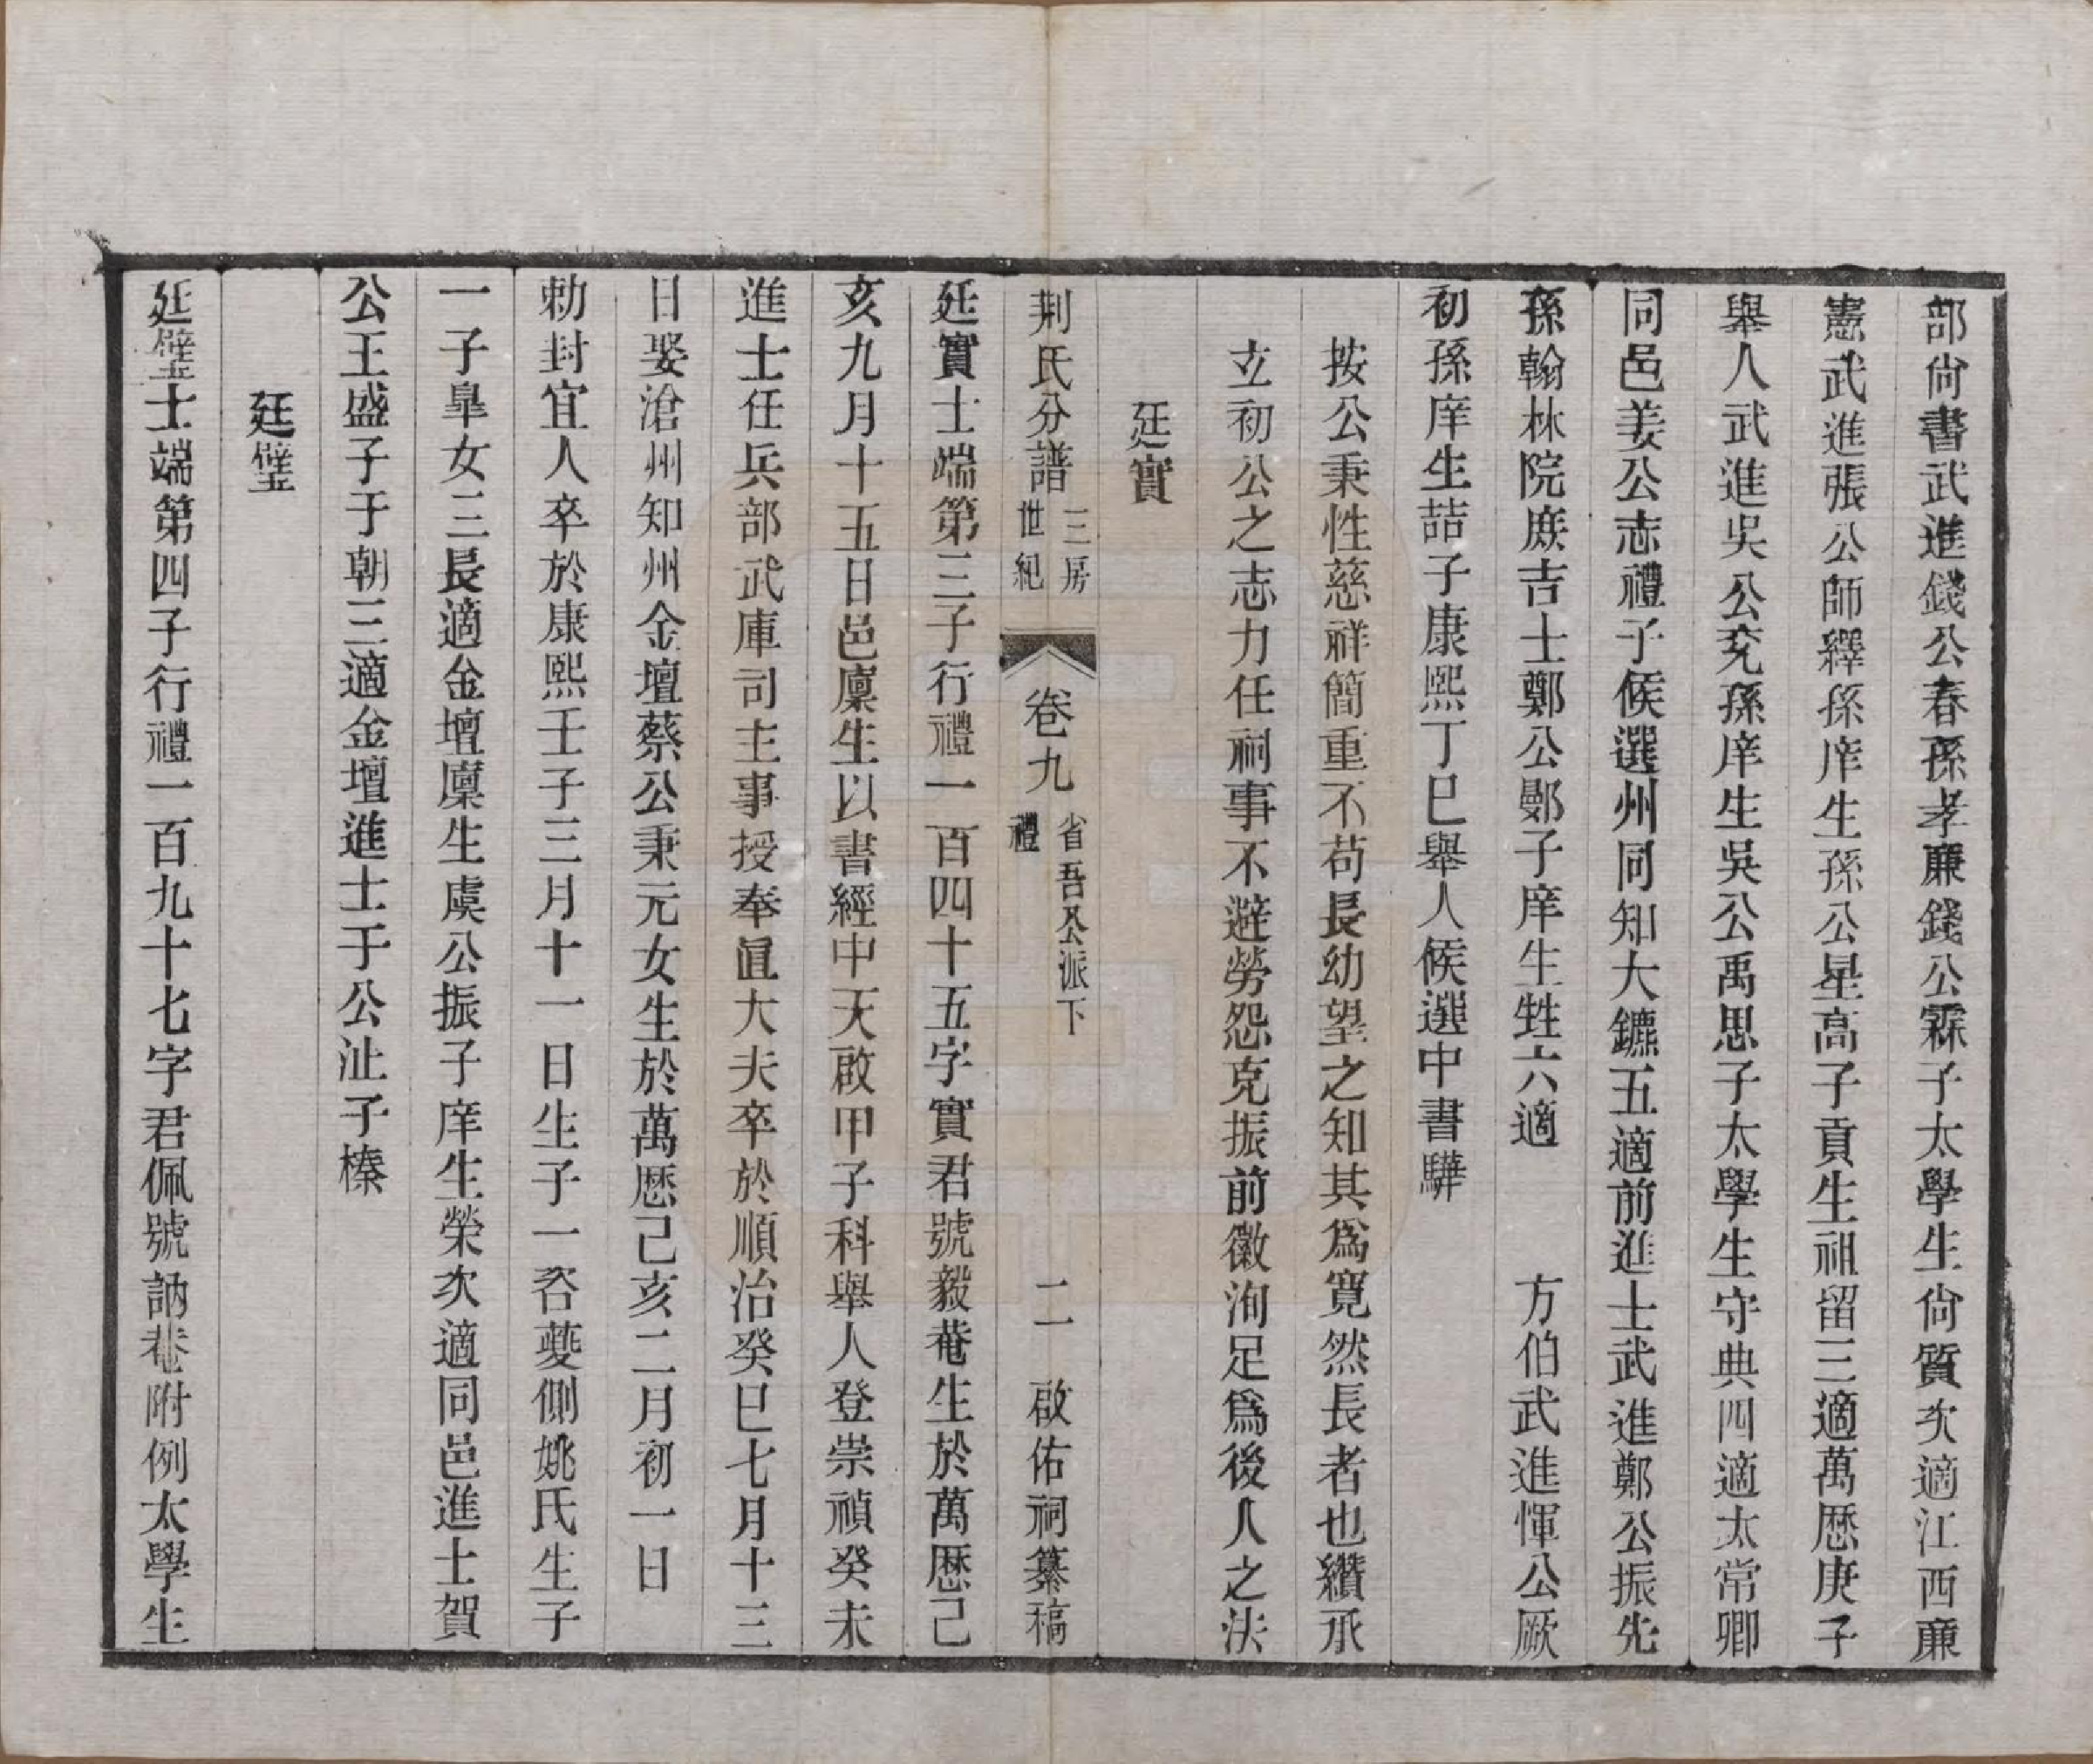 部尙書武進錢公春孫孝廉錢公霖子太學生尙質次適江西廉
憲武進張公師繹孫庠生孫公星高子貢生祖留三適萬歷庚子
舉人武進吳公兗孫庠生吳公禹思子太學生守典四適太常卿
同邑姜公志禮子候選州同知大鑣五適前進士武進鄭公振先
孫翰林院庶吉士鄭公鄤子庠生甡六適　方伯武進惲公厥
初孫庠生喆子康熙丁巳舉人候選中書驊
按公秉性慈祥簡重不苟長幼望之知其爲寬然長者也纘承
立初公之志力任祠事不避勞怨克振前徽洵足爲後人之法
廷實
荆氏分譜 三房世紀 卷九 省吾公派下禮 二 啟佑祠纂稿
廷實士端第三子行禮一百四十五字實君號毅菴生於萬歷己
亥九月十五日邑廩生以書經中天啟甲子科舉人登崇禎癸未
進士任兵部武庫司主事授奉直大夫卒於順治癸巳七月十三
日娶滄州知州金壇蔡公秉元女生於萬歷己亥二月初一日
勅封宜人卒於康熙壬子三月十一日生子一咨夔側姚氏生子
一子臯女三長適金壇廩生虞公振子庠生榮次適同邑進士賀
公王盛子于朝三適金壇進士于公沚子榛
廷璧
廷璧士端第四子行禮一百九十七字君佩號訥菴附例太學生